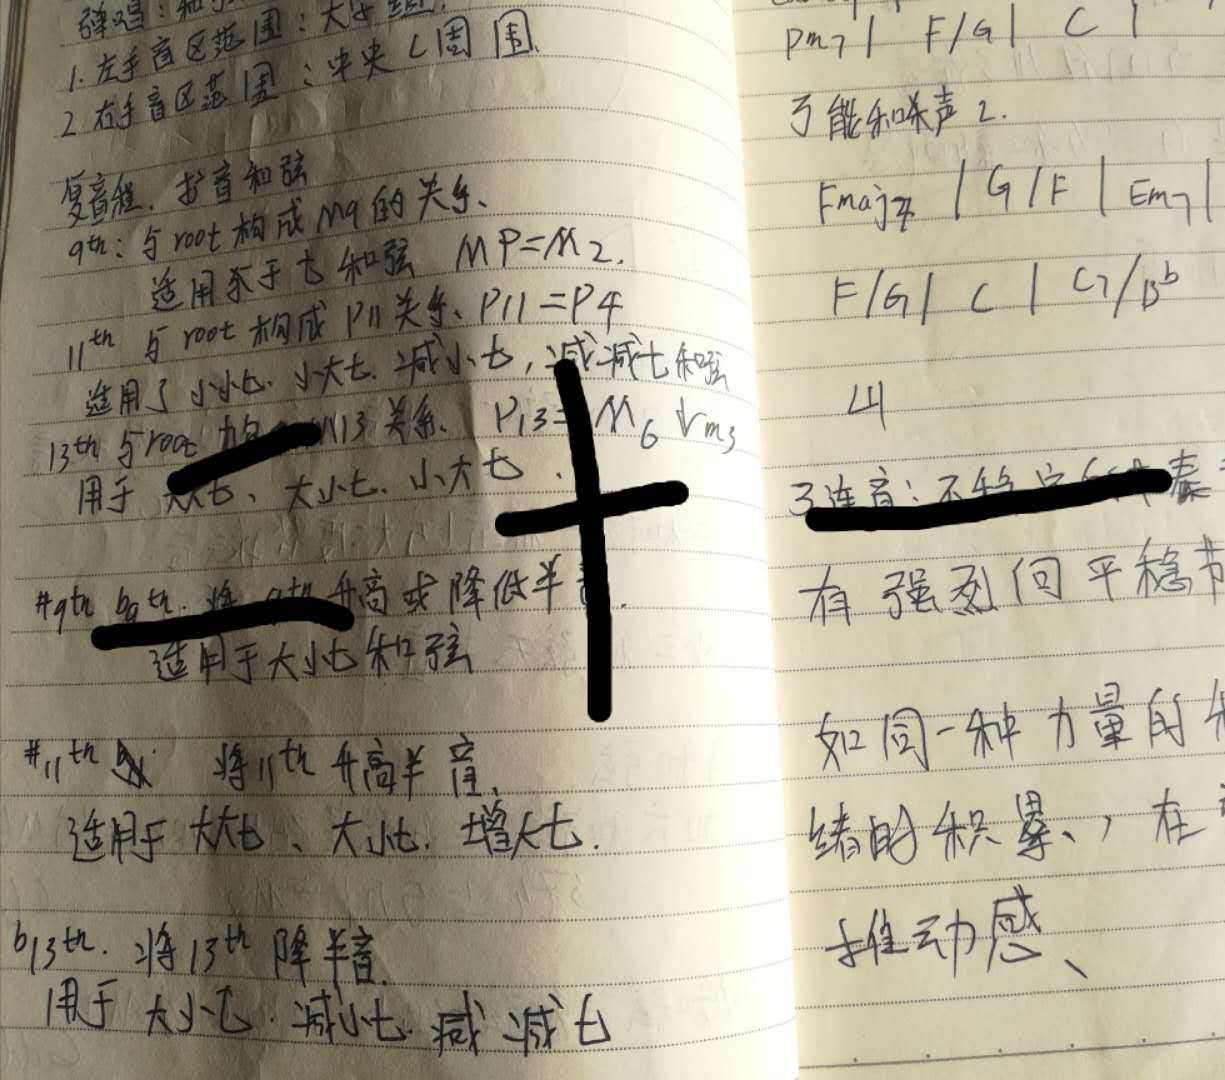 1. 左手音区范围：大字组.
2 右手音区范围：中央C周围.
复音程. 扩音和弦
9th：与root构成M9的关系、
适用于七和弦 M9=M2.
11th 与root构成P11关系、P11=P4
适用于小小七. 小大七. 减小七，减减七和弦
13th 与root 13关系. P13=M6 ↓m3
用于大大七、大小七. 小大七.
#9th b9th. 将 升高或降低半
适用于大小七和弦
#11th 将11th 升高半音、
适用于大大七、大小七. 增大七.
b13th. 将13th 降半音.
用于大小七. 减小七. 减减七
Dm7 | F/G | C |
了能和噪声2.
Fmaj7 | G/F | Em7 |
F/G | C | C7/Bb
山
3连音：不稳 奏
有强烈回平稳节
如同一种力量的
绪的积累、，在
推动感、